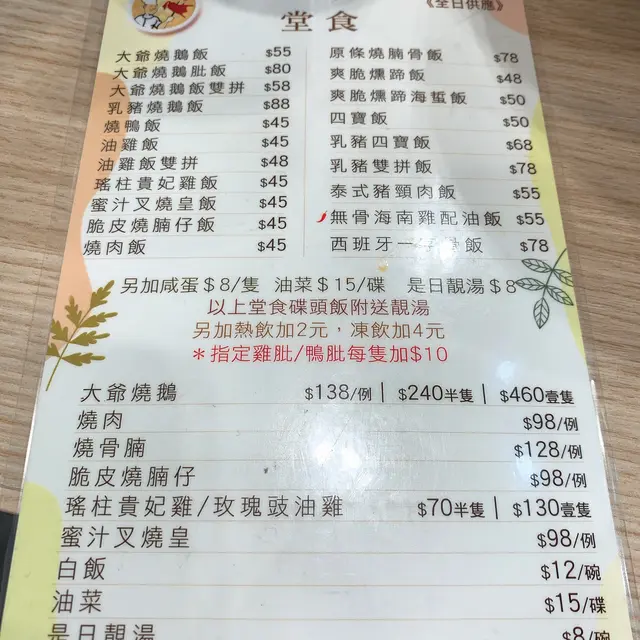 《全日供應》
堂食
大爺燒鵝飯 $55
大爺燒鵝肶飯 $80
大爺燒鵝飯雙拼 $58
乳豬燒鵝飯 $88
燒鴨飯 $45
油雞飯 $45
油雞飯雙拼 $48
瑤柱貴妃雞飯 $45
蜜汁叉燒皇飯 $45
脆皮燒腩仔飯 $45
燒肉飯 $45
原條燒腩骨飯 $78
爽脆燻蹄飯 $48
爽脆燻蹄海蜇飯 $50
四寶飯 $50
乳豬四寶飯 $68
乳豬雙拼飯 $78
泰式豬頸肉飯 $55
無骨海南雞配油飯 $55
西班牙一 飯 $78
另加咸蛋$8/隻 油菜$15/碟 是日靚湯$8
以上堂食碟頭飯附送靚湯
另加熱飲加2元，凍飲加4元
*指定雞肶/鴨肶每隻加$10
大爺燒鵝 $138/例 | $240半隻 | $460壹隻
燒肉 $98/例
燒骨腩 $128/例
脆皮燒腩仔 $98/例
瑤柱貴妃雞/玫瑰豉油雞 $70半隻 | $130壹隻
蜜汁叉燒皇 $98/例
白飯 $12/碗
油菜 $15/碟
是日靚湯 $8/碗